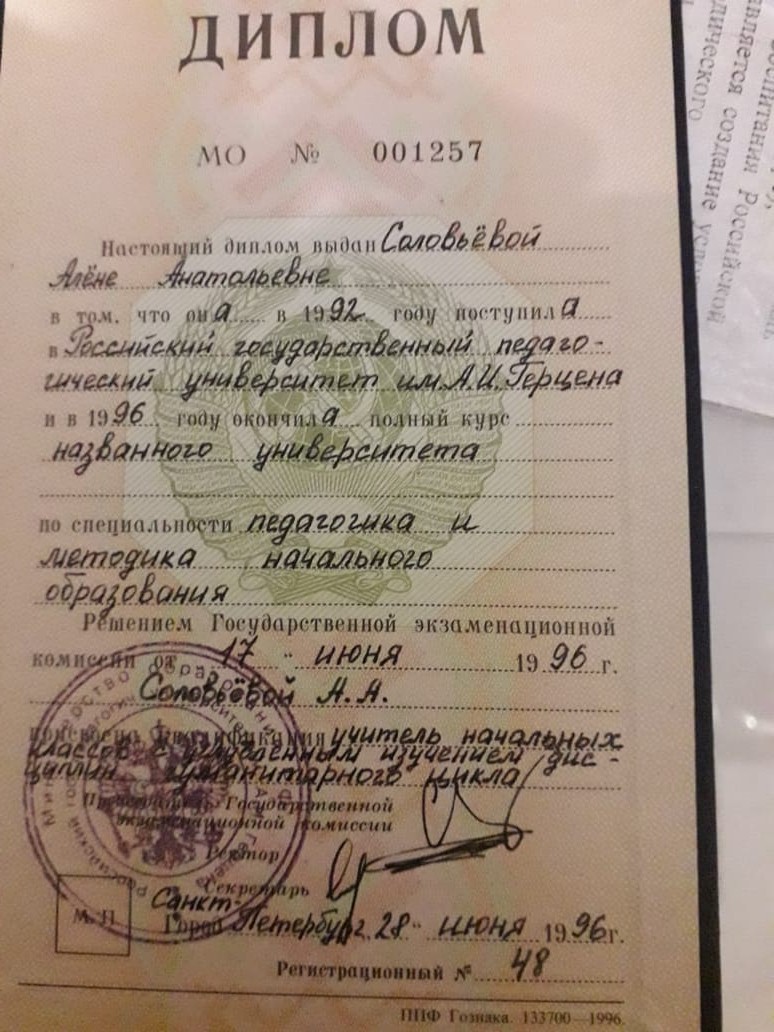 ДИПЛОМ
МО № 001257
Настоящий диплом выдан Соловьёвой
Алёне Анатольевне
в том, что она в 1992 году поступила
в Российский государственный педаго-
гический университет им.А.И.Герцена
и в 1996 году окончила полный курс
названного университета
по специальности педагогика и
методика начального
образования
Решением Государственной экзаменационной
комиссии от 17 " июня 1996 г.
Соловьёвой А.А.
присвоена квалификация учитель начальных
классов с углубленным изучением дис-
циплин гуманитарного цикла
Председатель Государственной
экзаменационной комиссии
Ректор
Секретарь
Санкт-
М. П.
Город Петербург 28 " июня 1996г.
Регистрационный № 48
ППФ Гознака. 133700—1996.
воспитания Российской
является создание